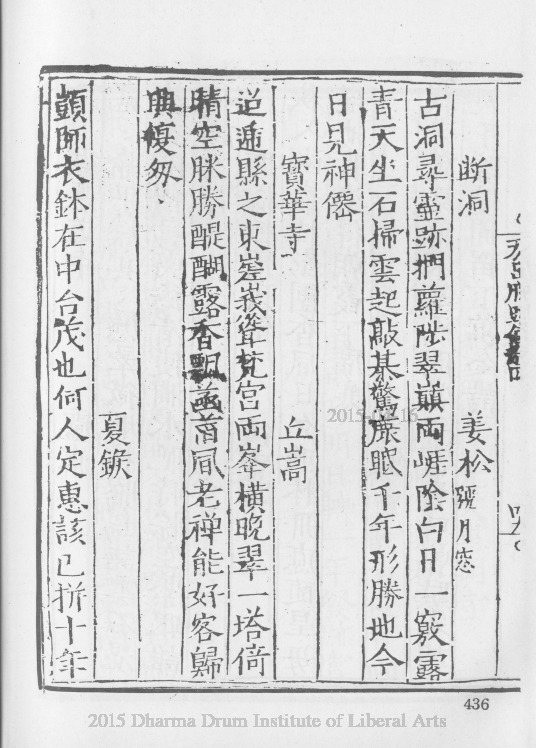 断洞　姜松號月窓
古洞尋靈跡捫蘿陟翠巔兩崕陰白日一竅露
青天坐石掃雲起敲棊驚鹿眠千年形勝地今
日見神僊
寶華寺　丘嵩
迢遞縣之東崔莪聳梵宫兩峯横晩翠一塔倚
晴空眯勝醍醐露香飄菡萏風老禅能好客歸
興復匆
夏鍭
顗師衣鉢在中台茂也何人定惠該已拚十年
436
2015 Dharma Drum Institute of Liberal Arts